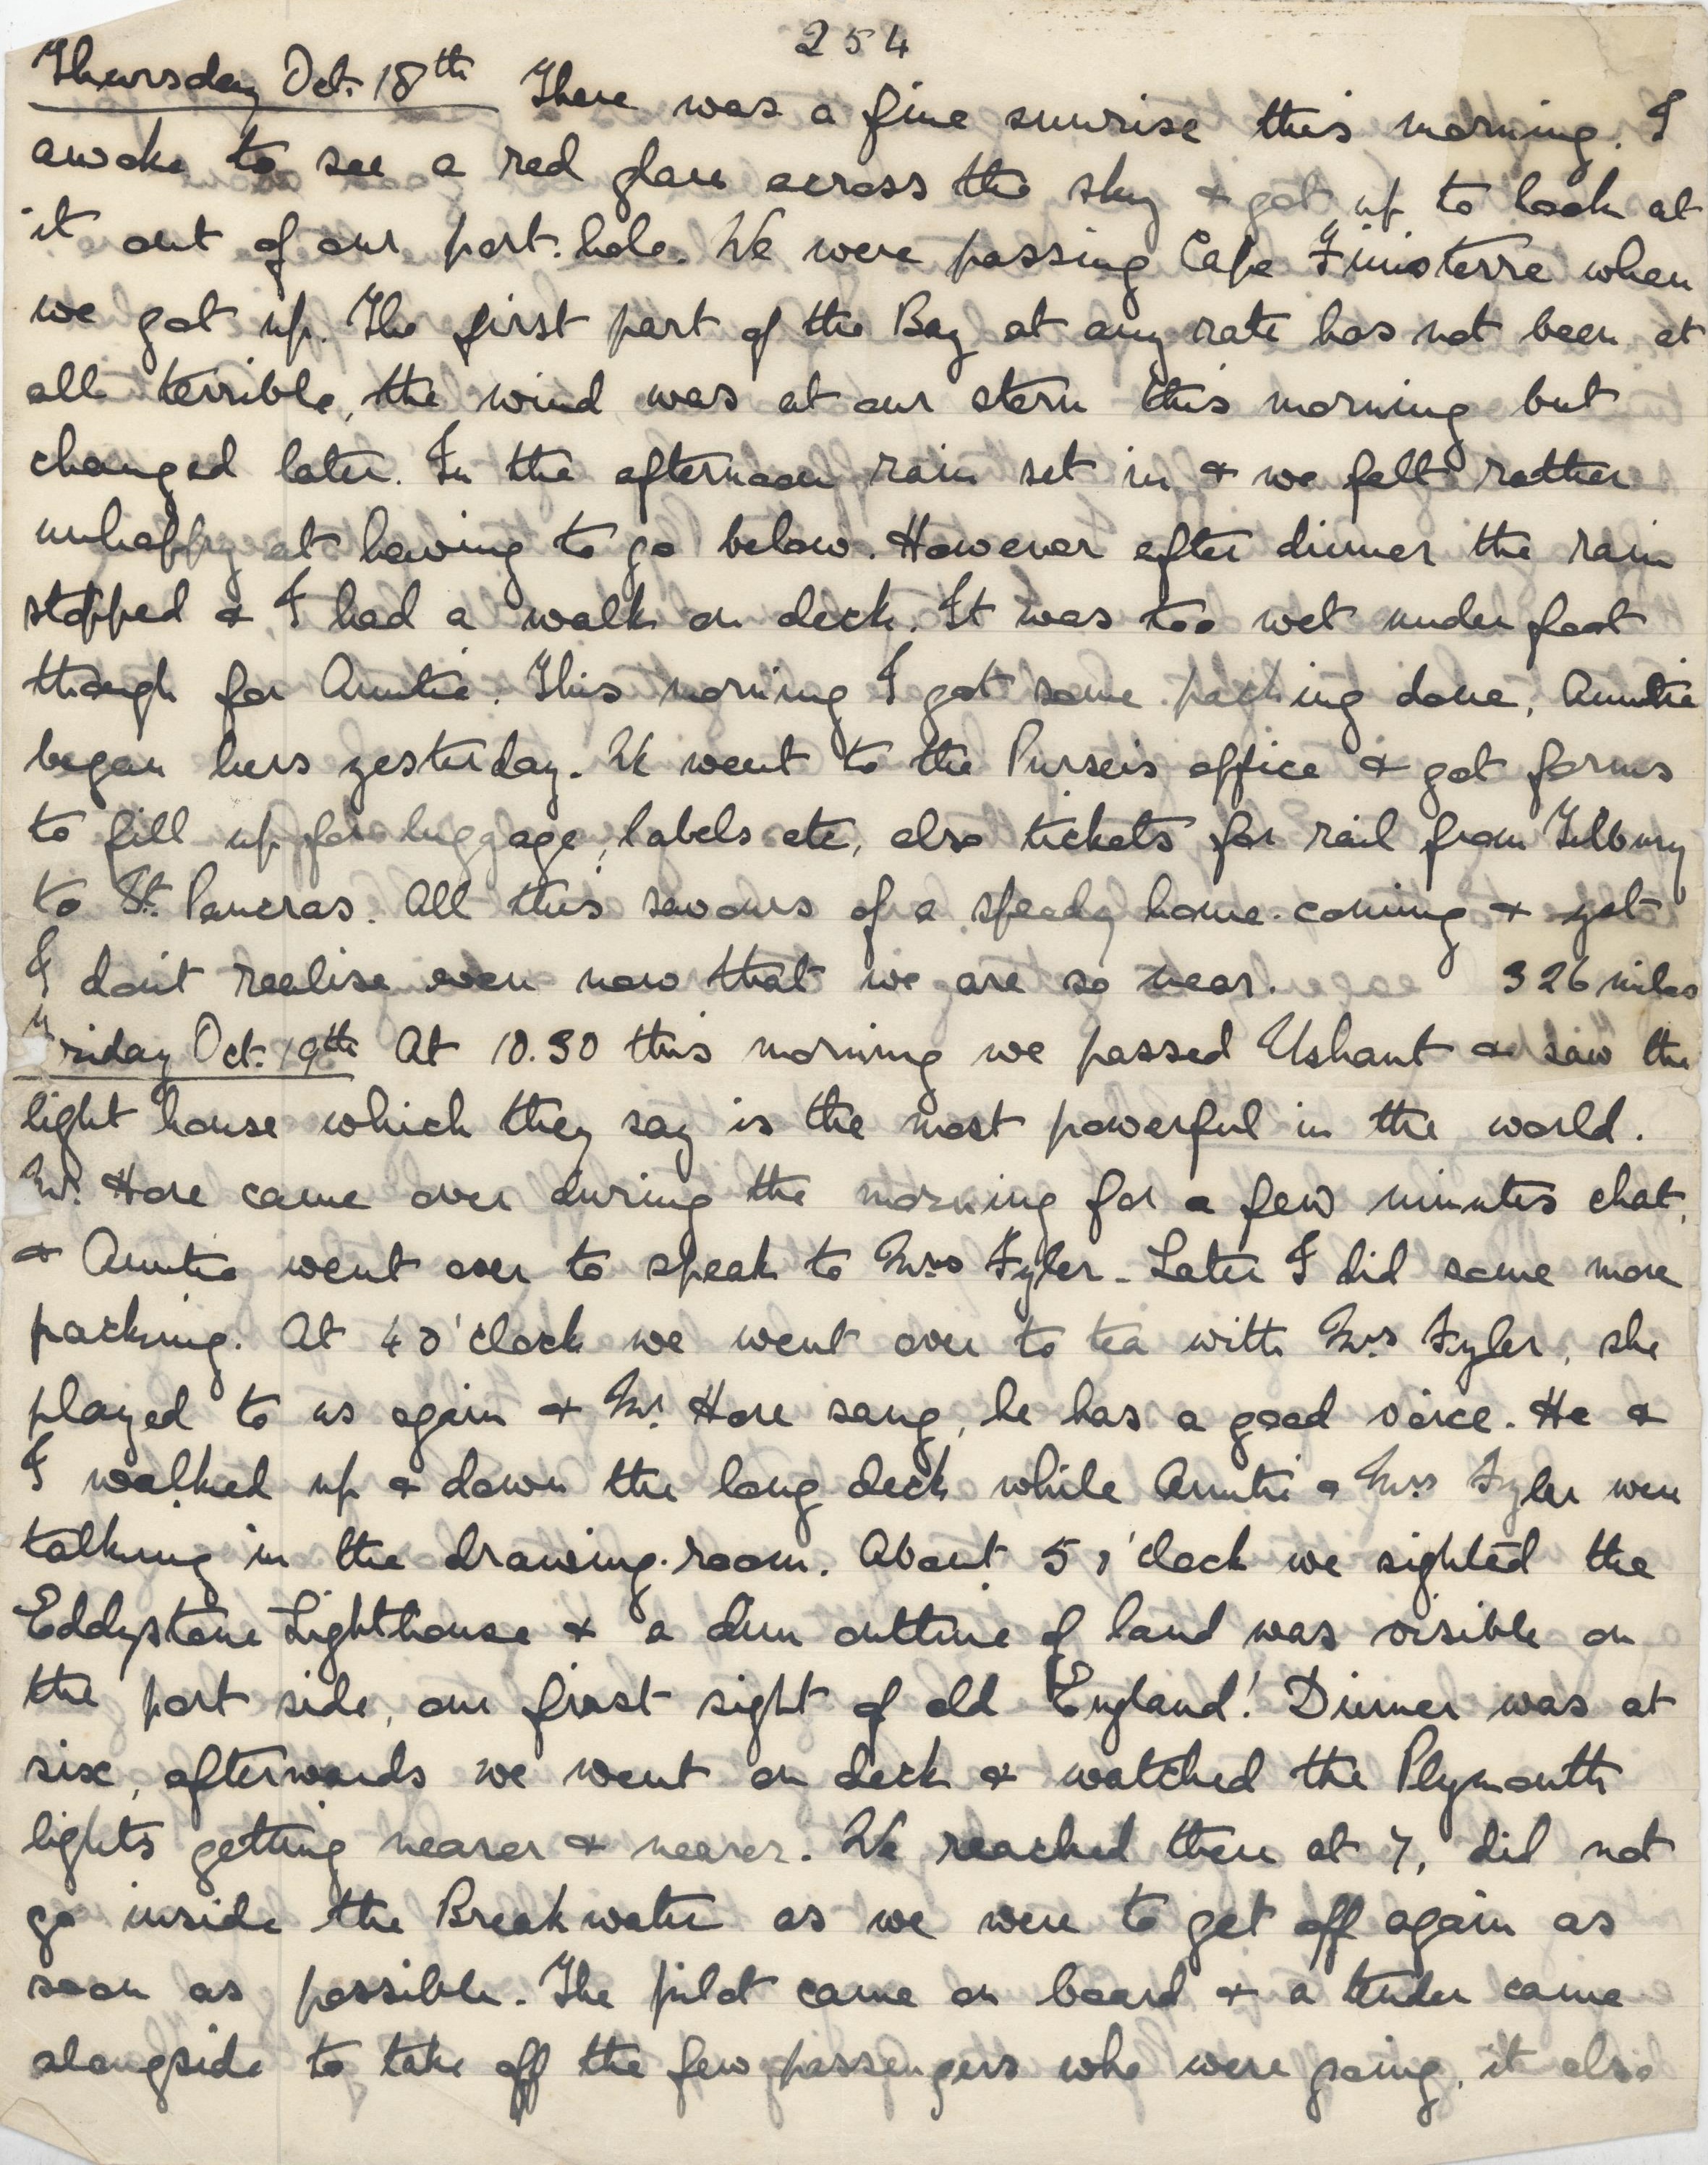 254
Thursday Oct. 18th There was a fine sunrise this morning. I
awoke to see a red glare across the sky & got up to look at
it out of our port-hole. We were passing Cape Finisterre when
we got up. The first part of the Bay at any rate has not been at
all terrible, the wind was at our stern this morning but
changed later. In the afternoon rain set in & we felt rather
unhappy at having to go below. However after dinner the rain
stopped & I had a walk on deck. It was too wet under foot
though for Auntie. This morning I got some packing done, Auntie
began hers yesterday. We went to the Purser's office & got forms
to fill up for luggage, labels etc, also tickets for rail from Tilbury
to St. Pancras. All this savours of a speedy home-coming & yet
I don't realise even now that we are so near. 326 miles
Friday Oct. 19th At 10.30 this morning we passed Ushant & saw the
light house which they say is the most powerful in the world.
Mr. Hore came over during the morning for a few minutes chat,
& Auntie went over to speak to Mrs Fyler. Later I did some more
packing. At 4 o'clock we went over to tea with Mrs Fyler, she
played to us again & Mr. Hore sang, he has a good voice. He &
I walked up & down the long deck while Auntie & Mrs Fyler were
talking in the drawing-room. About 5 o'clock we sighted the
Eddystone Lighthouse & a dim outline of land was visible on
the port side, our first sight of old England! Dinner was at
six, afterwards we went on deck & watched the Plymouth
lights getting nearer & nearer. We reached there at 7, did not
go inside the Breakwater as we were to get off again as
soon as possible. The pilot came on board & a tender came
alongside to take off the few passengers who were going, it also